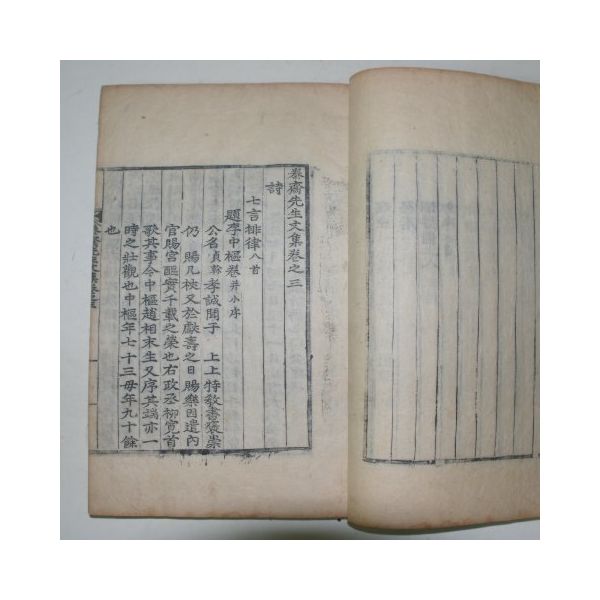 泰齋先生文集卷之三
詩
七言排律八首
題李中樞卷并小序
公名貞幹孝誠聞子 上上特敎書褒崇
仍 賜几杖又於獻壽之日賜樂因遣內
官賜宮醞實千載之榮也右政丞柳寬首
歌其事今中樞趙相末生又序其端亦一
時之壯觀也中樞年七十三母年九十餘
也